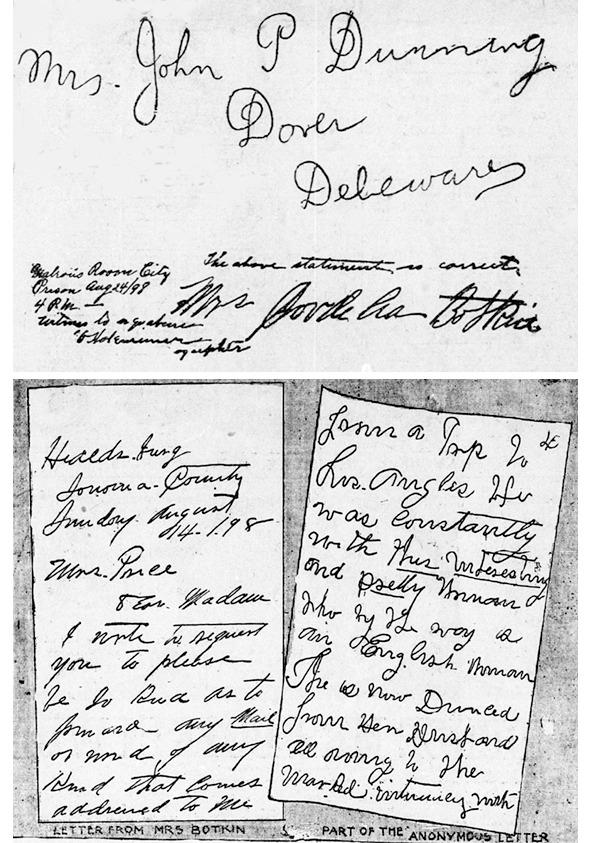 Mrs. John P Dunning
Dover
Deleware
The above statement is correct.
Room City
Prison Aug 24/98
4 P.M.
witness to signature
Mrs Cordelia Botkin
Healds-burg
Sonoma-County
Sunday August
14-1898
Mrs. Price
Dear Madam
I write to request
you to please
be so kind as to
forward any Mail
or word of any
kind that comes
addressed to Me
from a Trip to
Los-Angles He
was constantly
with this interesting
and pretty Woman
who by the way is
an English Woman
She is now Divorced
from Her Husband
all owing to the
Marked intimacy with
LETTER FROM MRS BOTKIN
PART OF THE ANONYMOUS LETTER